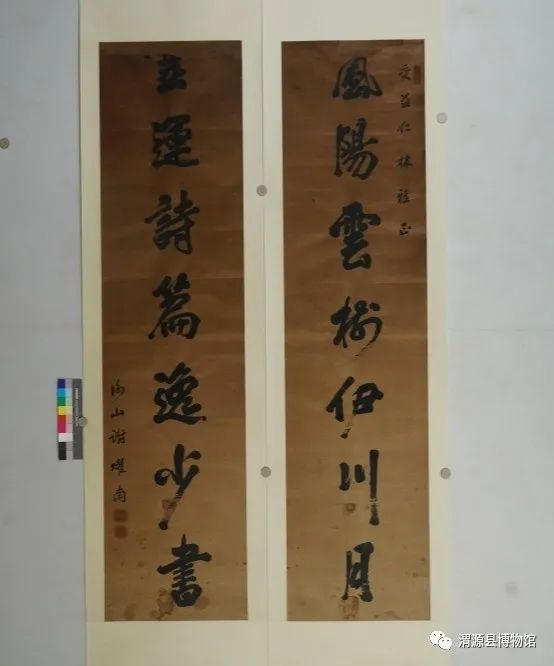 受益仁棣雅正
鳳陽雲樹伊川月
靈運詩篇逸少書
山謝燿南
渭源县博物馆